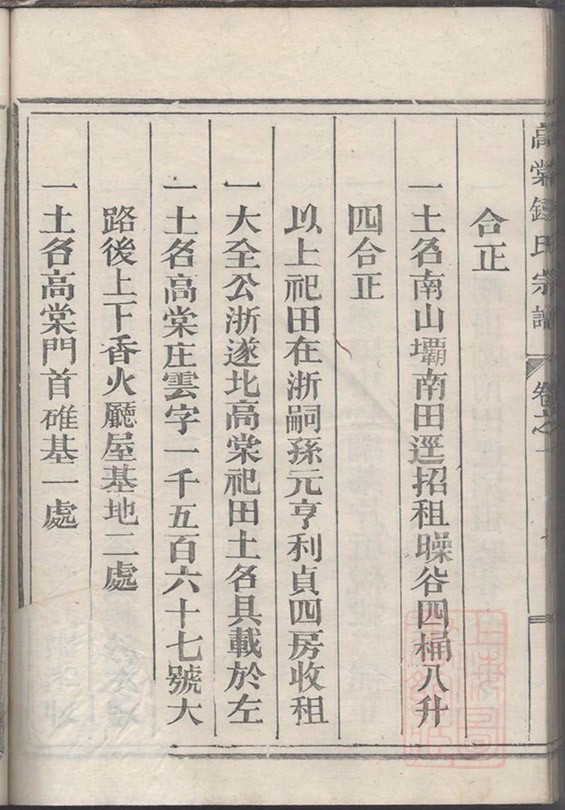 高棠鍾氏宗譜 卷之一
合正
一土名南山壩南田逕招租䵮谷四桶八升
四合正
以上祀田在浙嗣孫元亨利貞四房收租
一大全公浙遂北高棠祀田土名具載於左
一土名高棠庄雲字一千五百六十七號大
路後上下香火廳屋基地二處
一土名高棠門首碓基一處